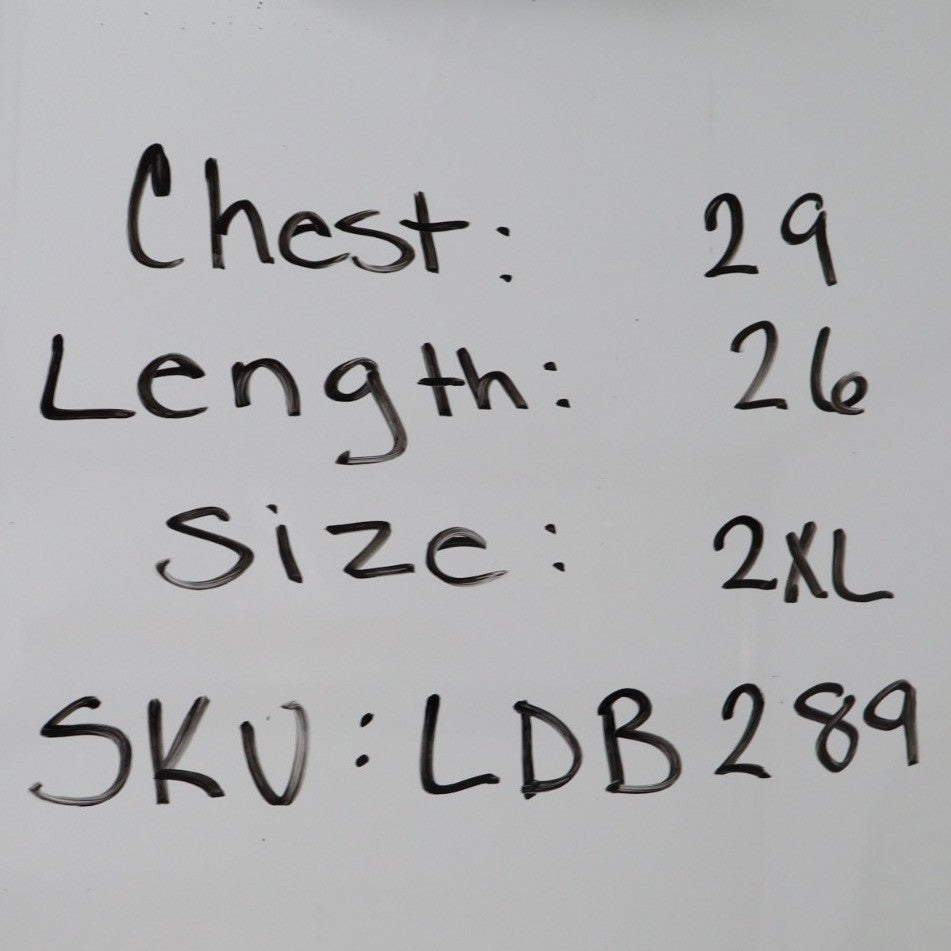 Chest: 29
Length: 26
Size: 2XL
SKU: LDB289